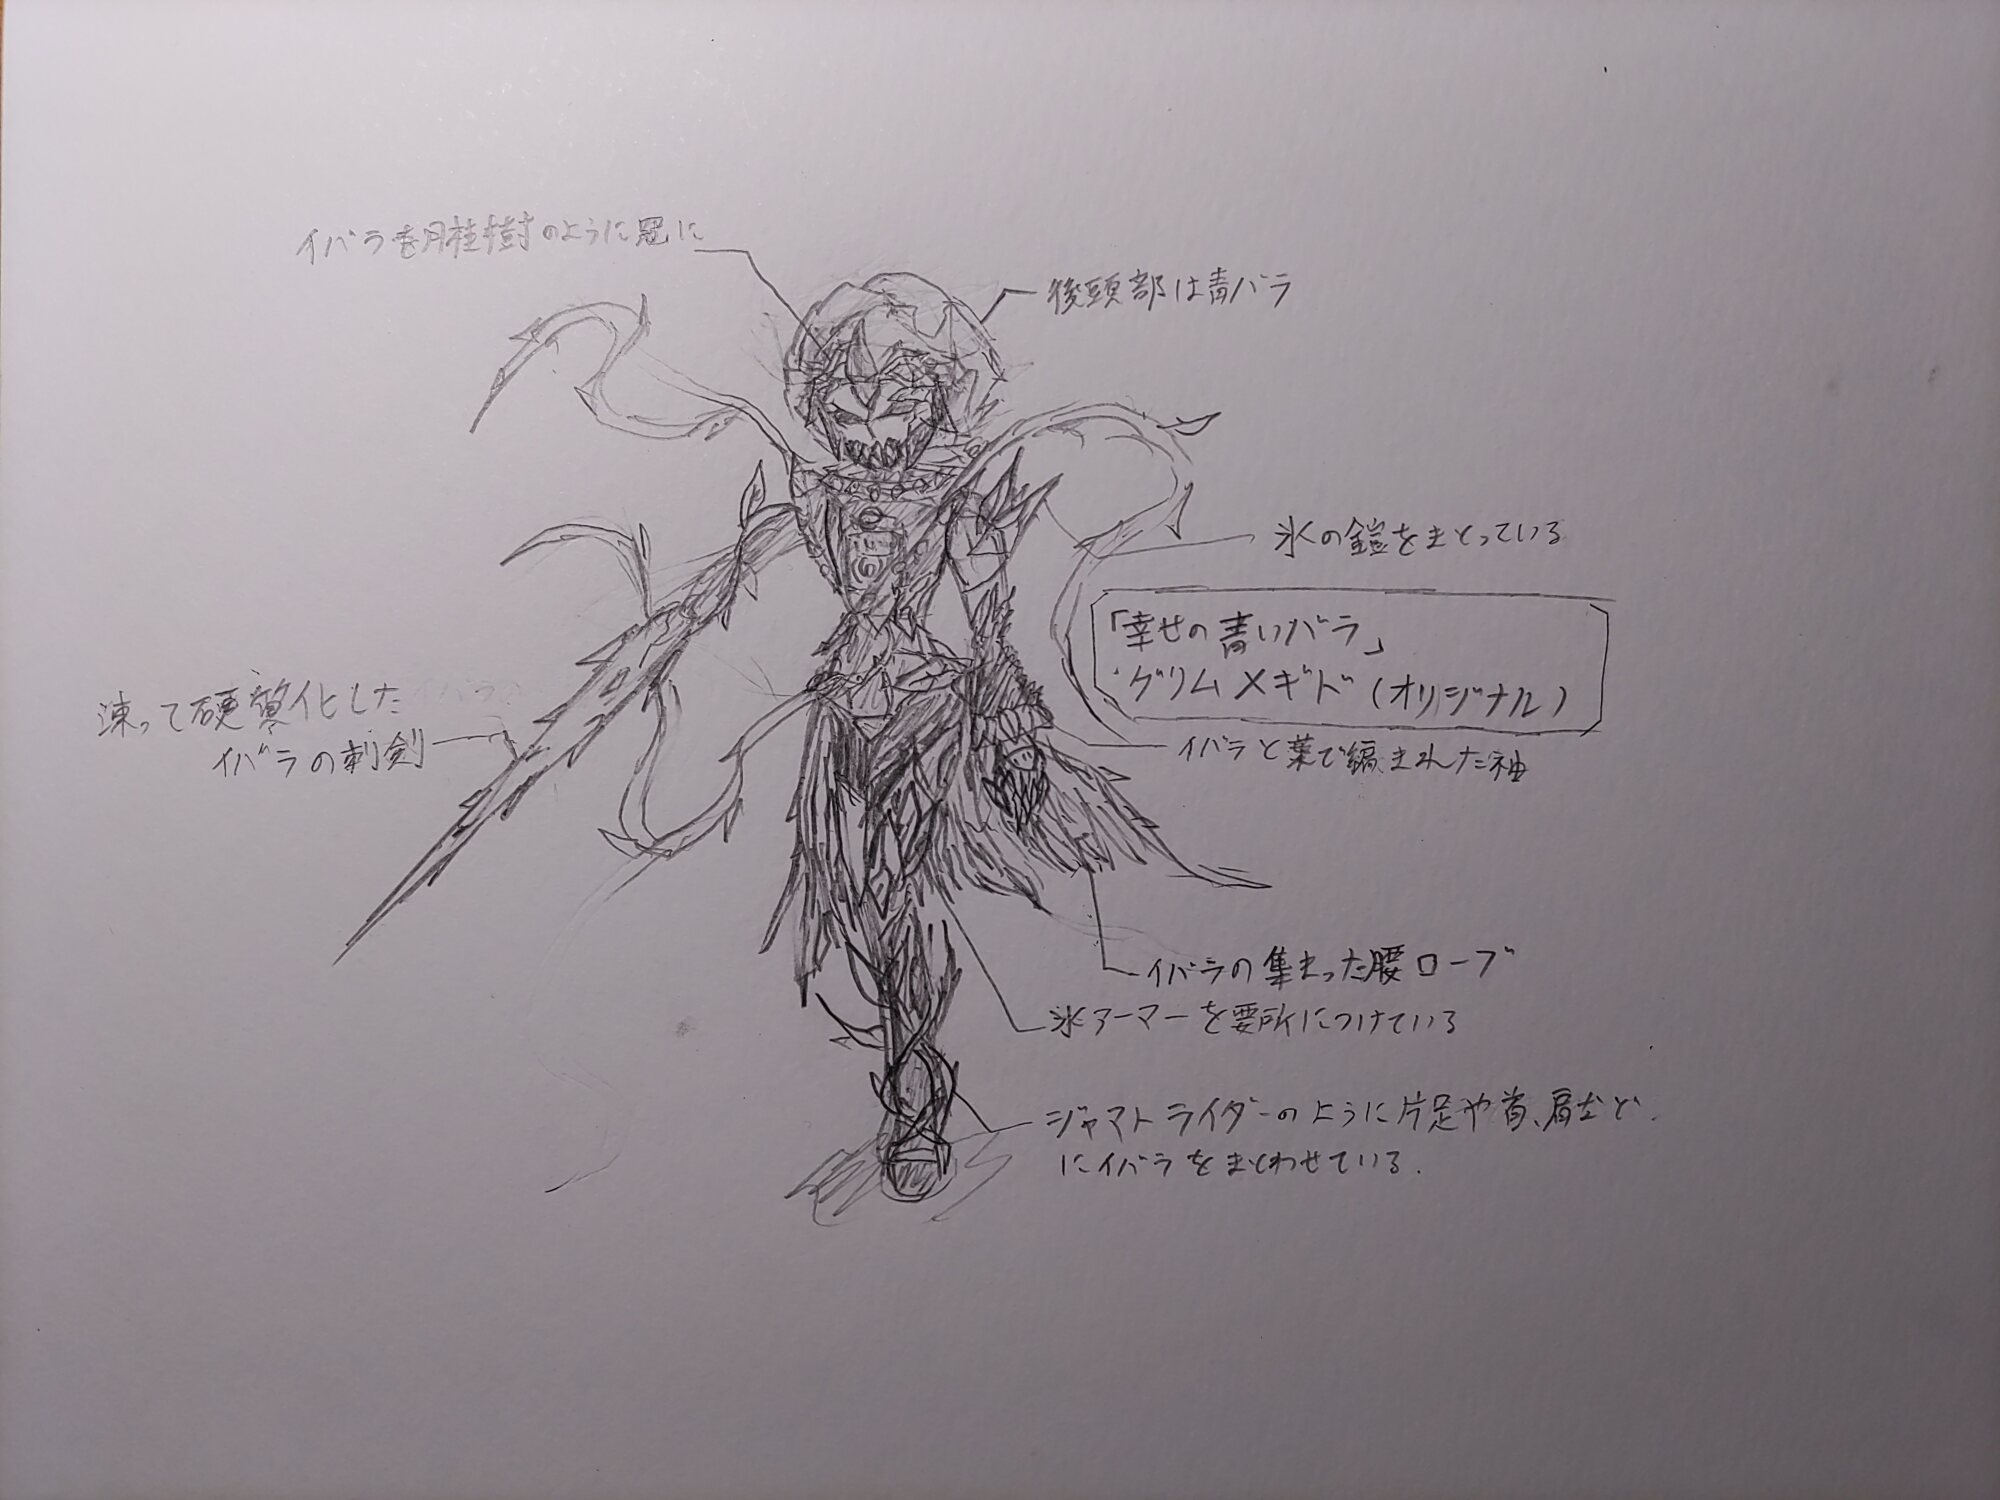 イバラを月桂樹のように冠に
後頭部は青バラ
氷の鎧をまとっている
「幸せの青いバラ」
グリムメギド(オリジナル)
凍って硬質化した
イバラの刺剣
イバラと葉で編まれた袖
イバラの集まった腰ローブ
氷アーマーを要所につけている
ジャマトライダーのように片足や首、肩など
にイバラをまとわせている.